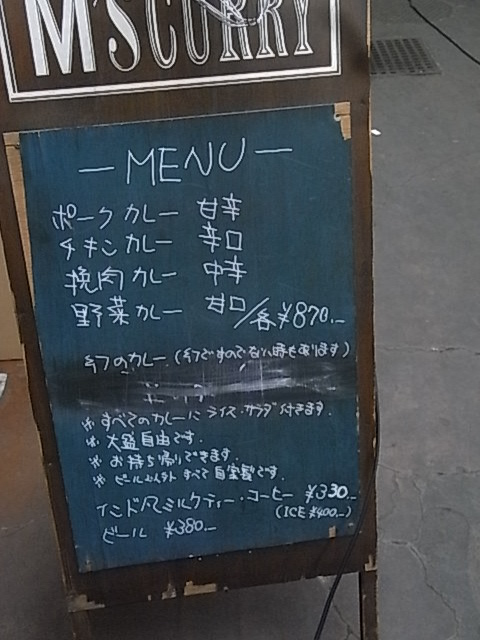 M'S CURRY
— MENU —
ポークカレー 甘辛
チキンカレー 辛口
挽肉カレー 中辛
野菜カレー 甘口/各¥870.—
幻のカレー(幻ですのでない時もあります)
※すべてのカレーにライス・サラダ付きます.
※大盛自由です.
※お持ち帰りできます.
※ビール以外すべて自家製です.
インド風ミルクティー・コーヒー ¥330.—
(ICE ¥400.—)
ビール ¥380.—